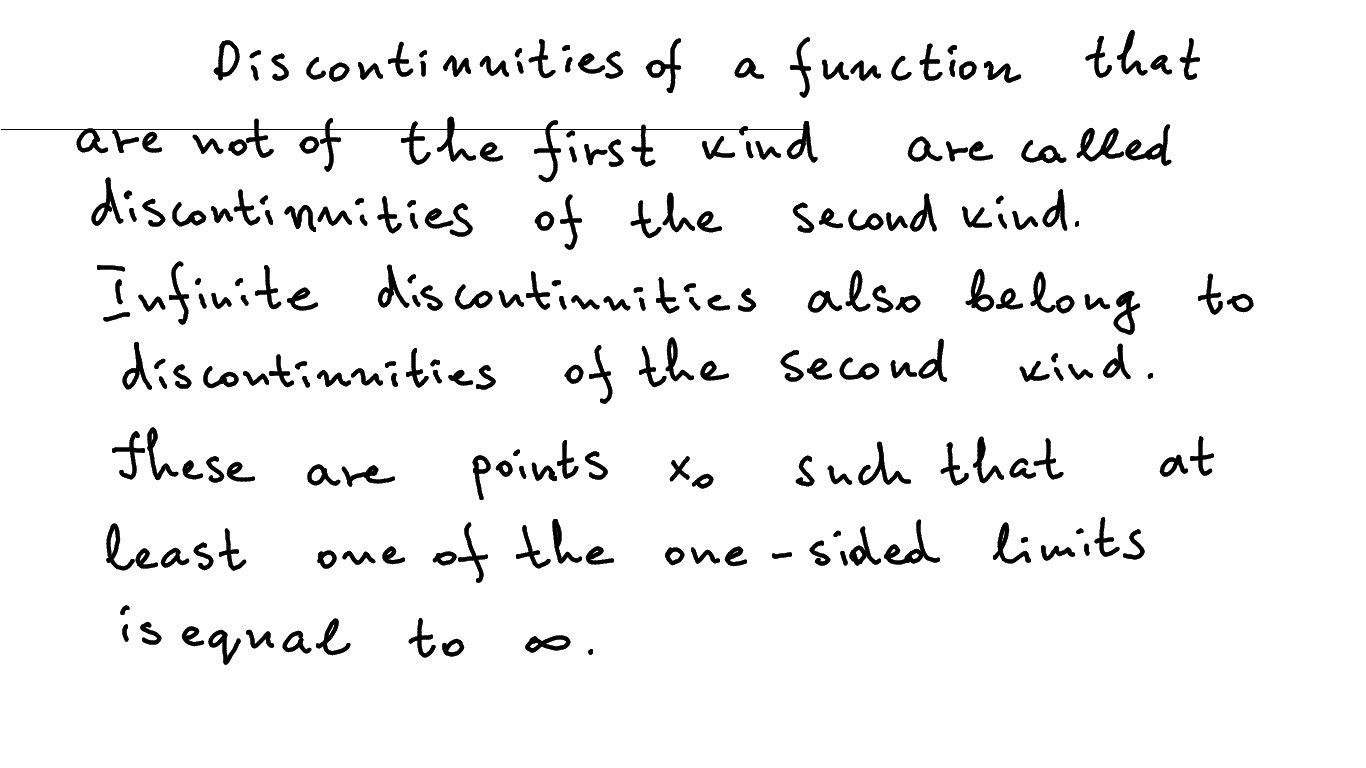 Discontinuities of a function that
are not of the first kind are called
discontinuities of the second kind.
Infinite discontinuities also belong to
discontinuities of the second kind.
These are points x₀ such that at
least one of the one-sided limits
is equal to ∞.